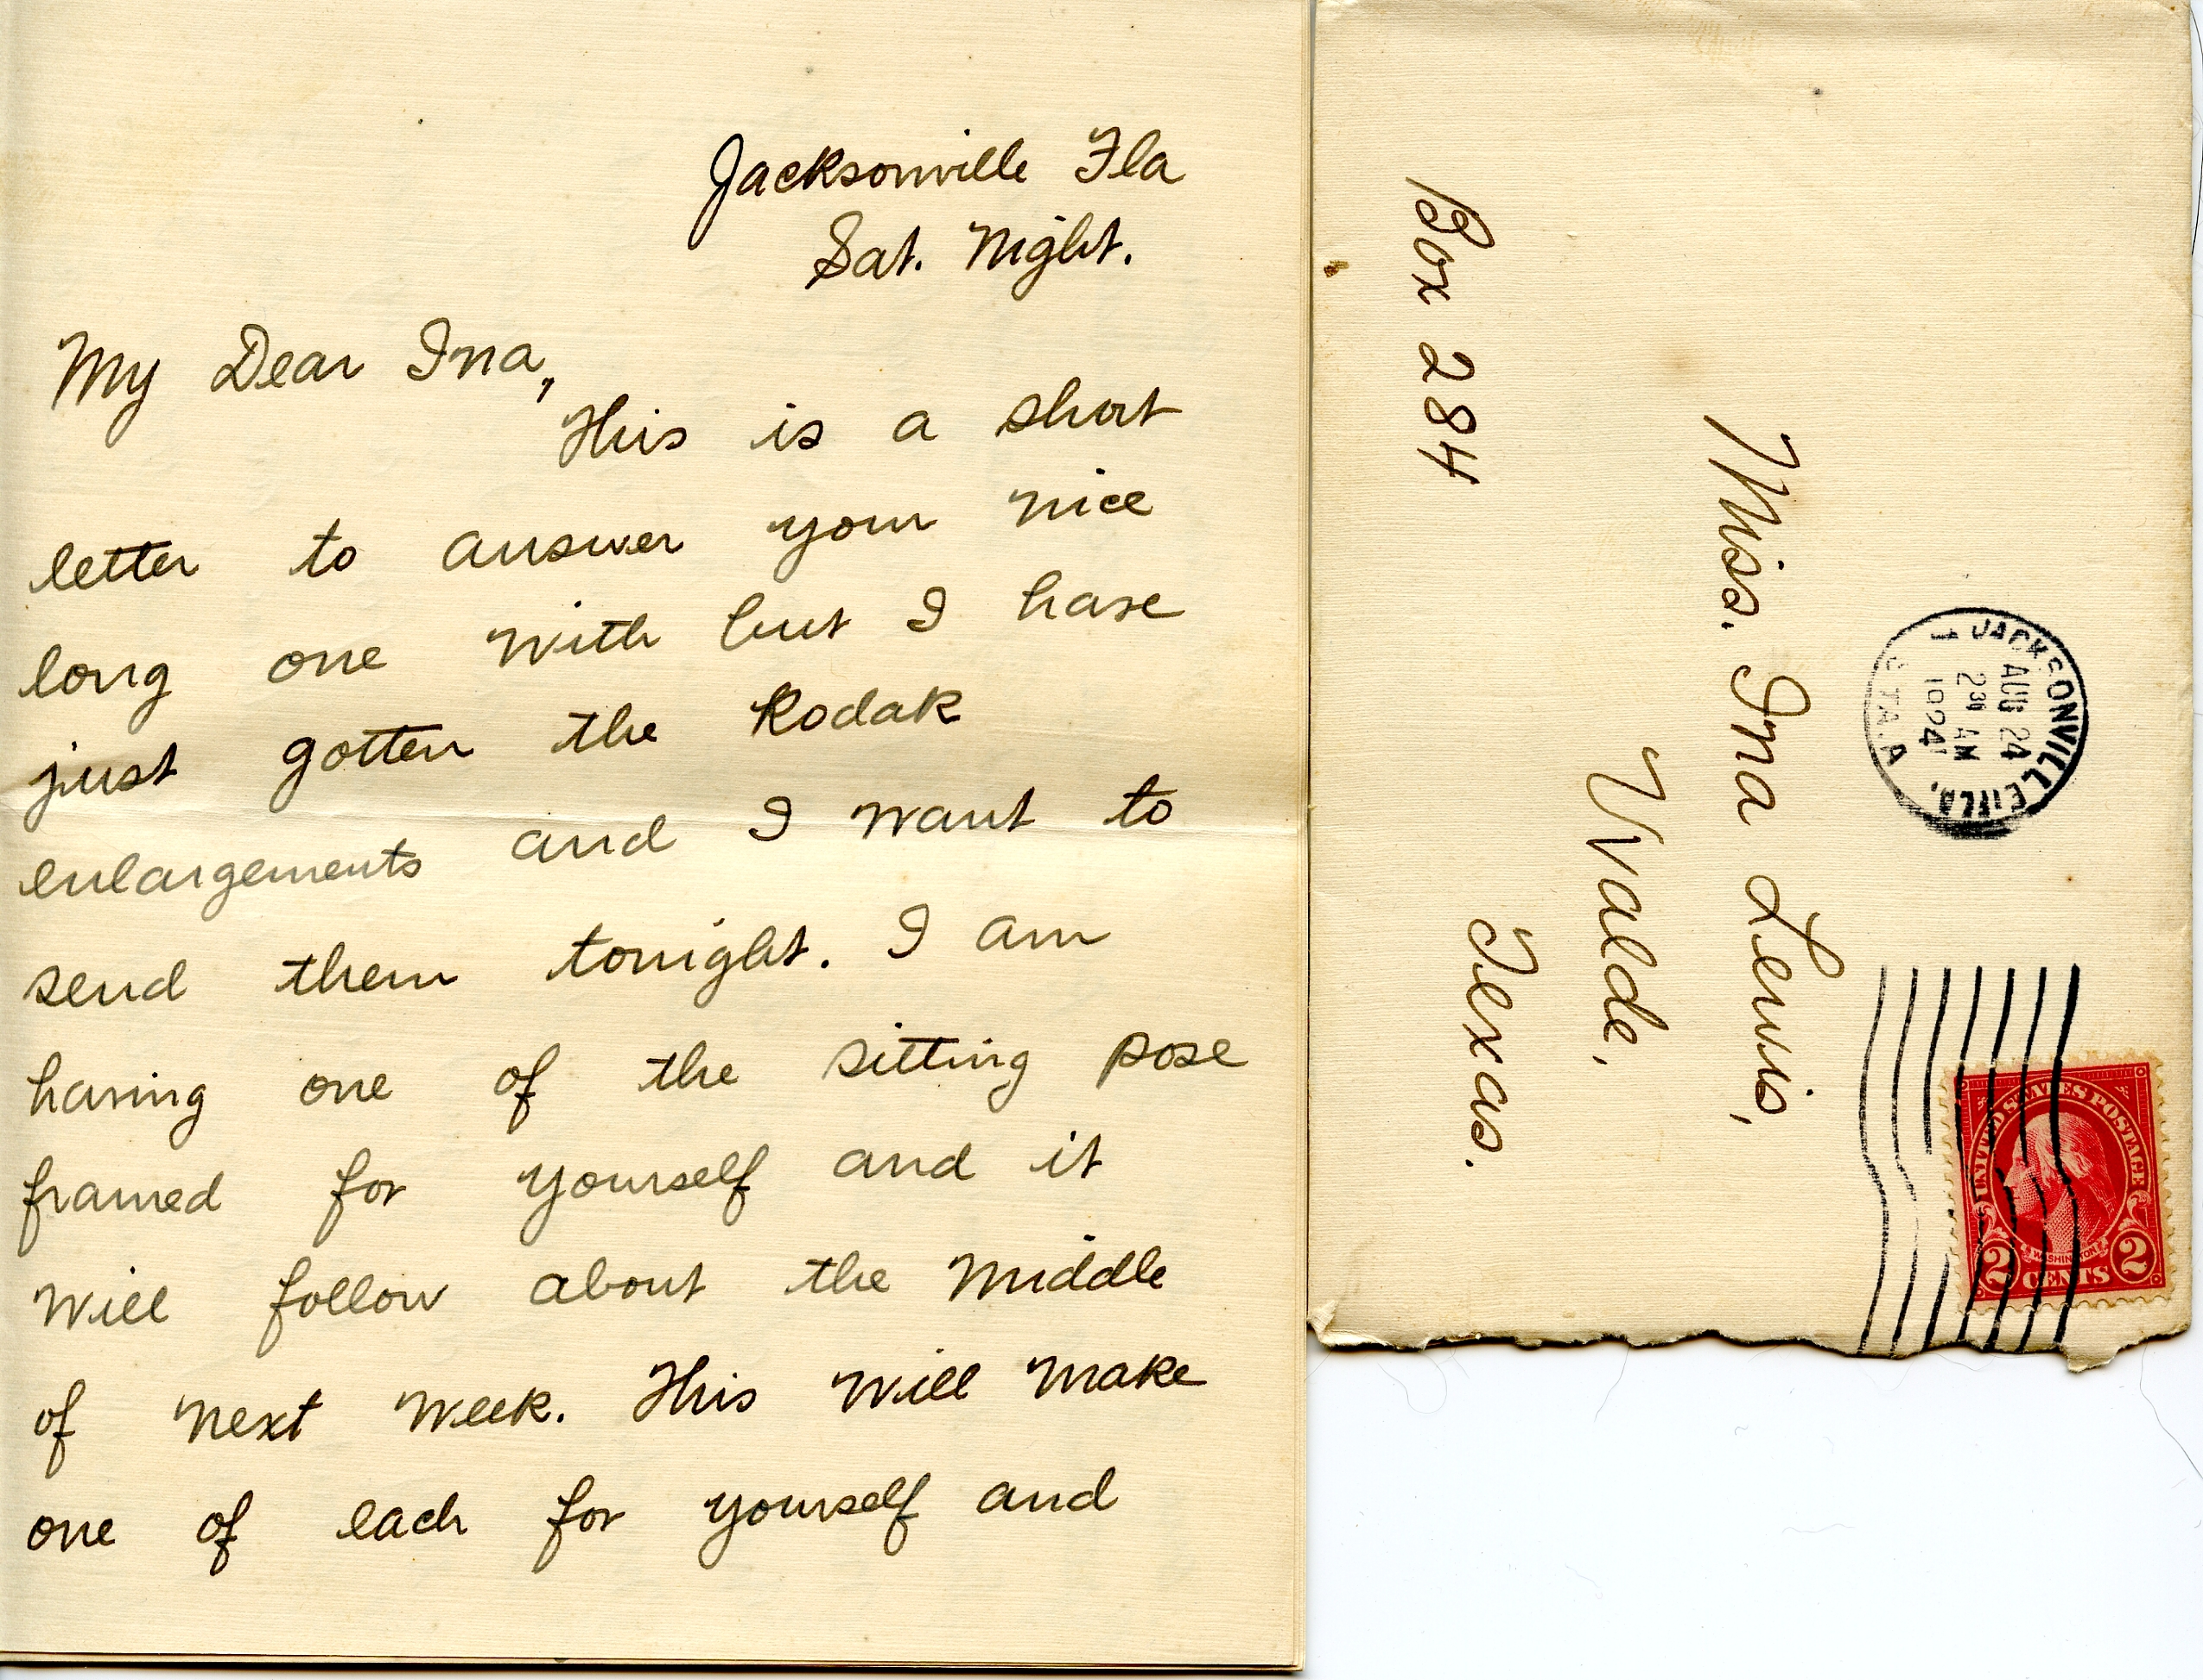 Jacksonville Fla
Sat. Night.
My Dear Ina,
This is a short
letter to answer your nice
long one with but I have
just gotten the Kodak
enlargements and I want to
send them tonight. I am
having one of the sitting pose
framed for yourself and it
will follow about the middle
of next week. This will make
one of each for yourself and
Miss. Ina Lewis,
Uvalde,
Texas.
Box 284
JACKSONVILLE, FLA.
1
AUG 24
230 AM
1924
STA. A
UNITED STATES POSTAGE
WASHINGTON
2 CENTS 2